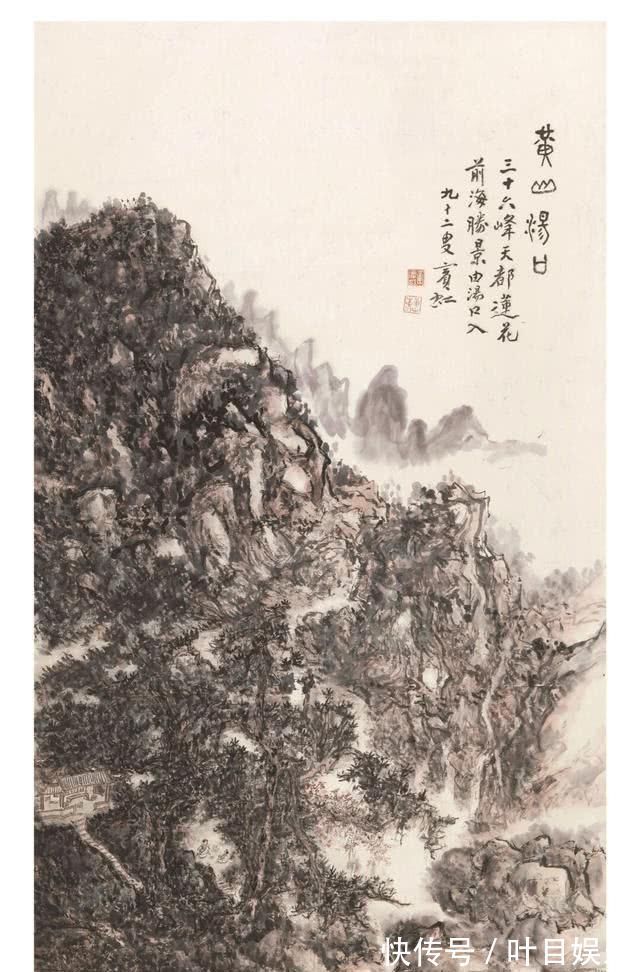 黄山湯口
三十六峰天都蓮花
前海勝景由湯口入
九十二叟賓虹
快传号／叶目娱